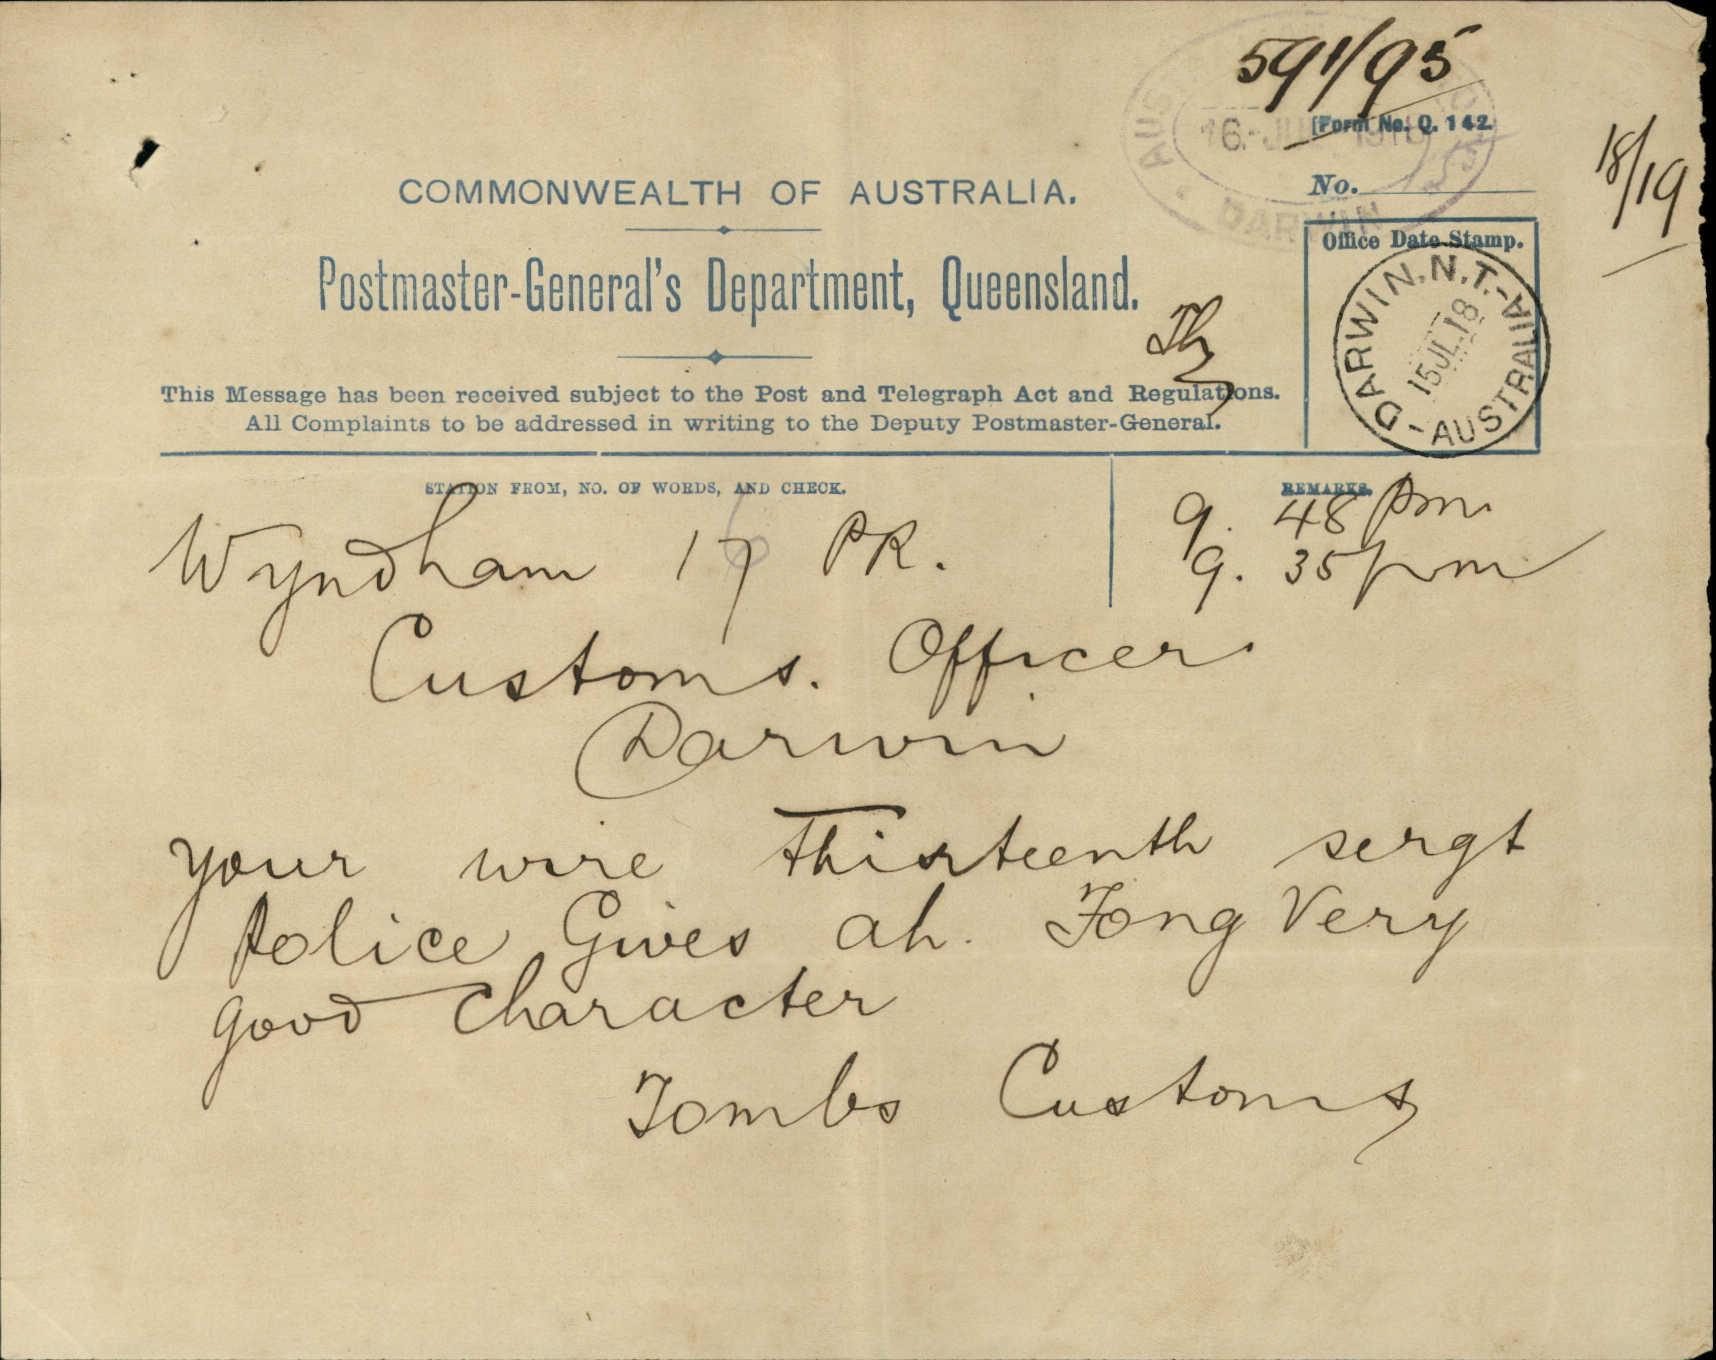 591/95
[Form No. Q. 142.
18/19
16 JUL 1918
DARWIN
COMMONWEALTH OF AUSTRALIA.
No.
Postmaster-General's Department, Queensland.
Office Date Stamp.
DARWIN. N.T. - AUSTRALIA -
15 JL 18
This Message has been received subject to the Post and Telegraph Act and Regulations.
All Complaints to be addressed in writing to the Deputy Postmaster-General.
STATION FROM, NO. OF WORDS, AND CHECK.
REMARKS.
Wyndham 17 PR.
9. 48 pm
9. 35 pm
Customs. Officer
Darwin
your wire thirteenth sergt
Police Gives ah. Fong Very
good character
Tombs Customs